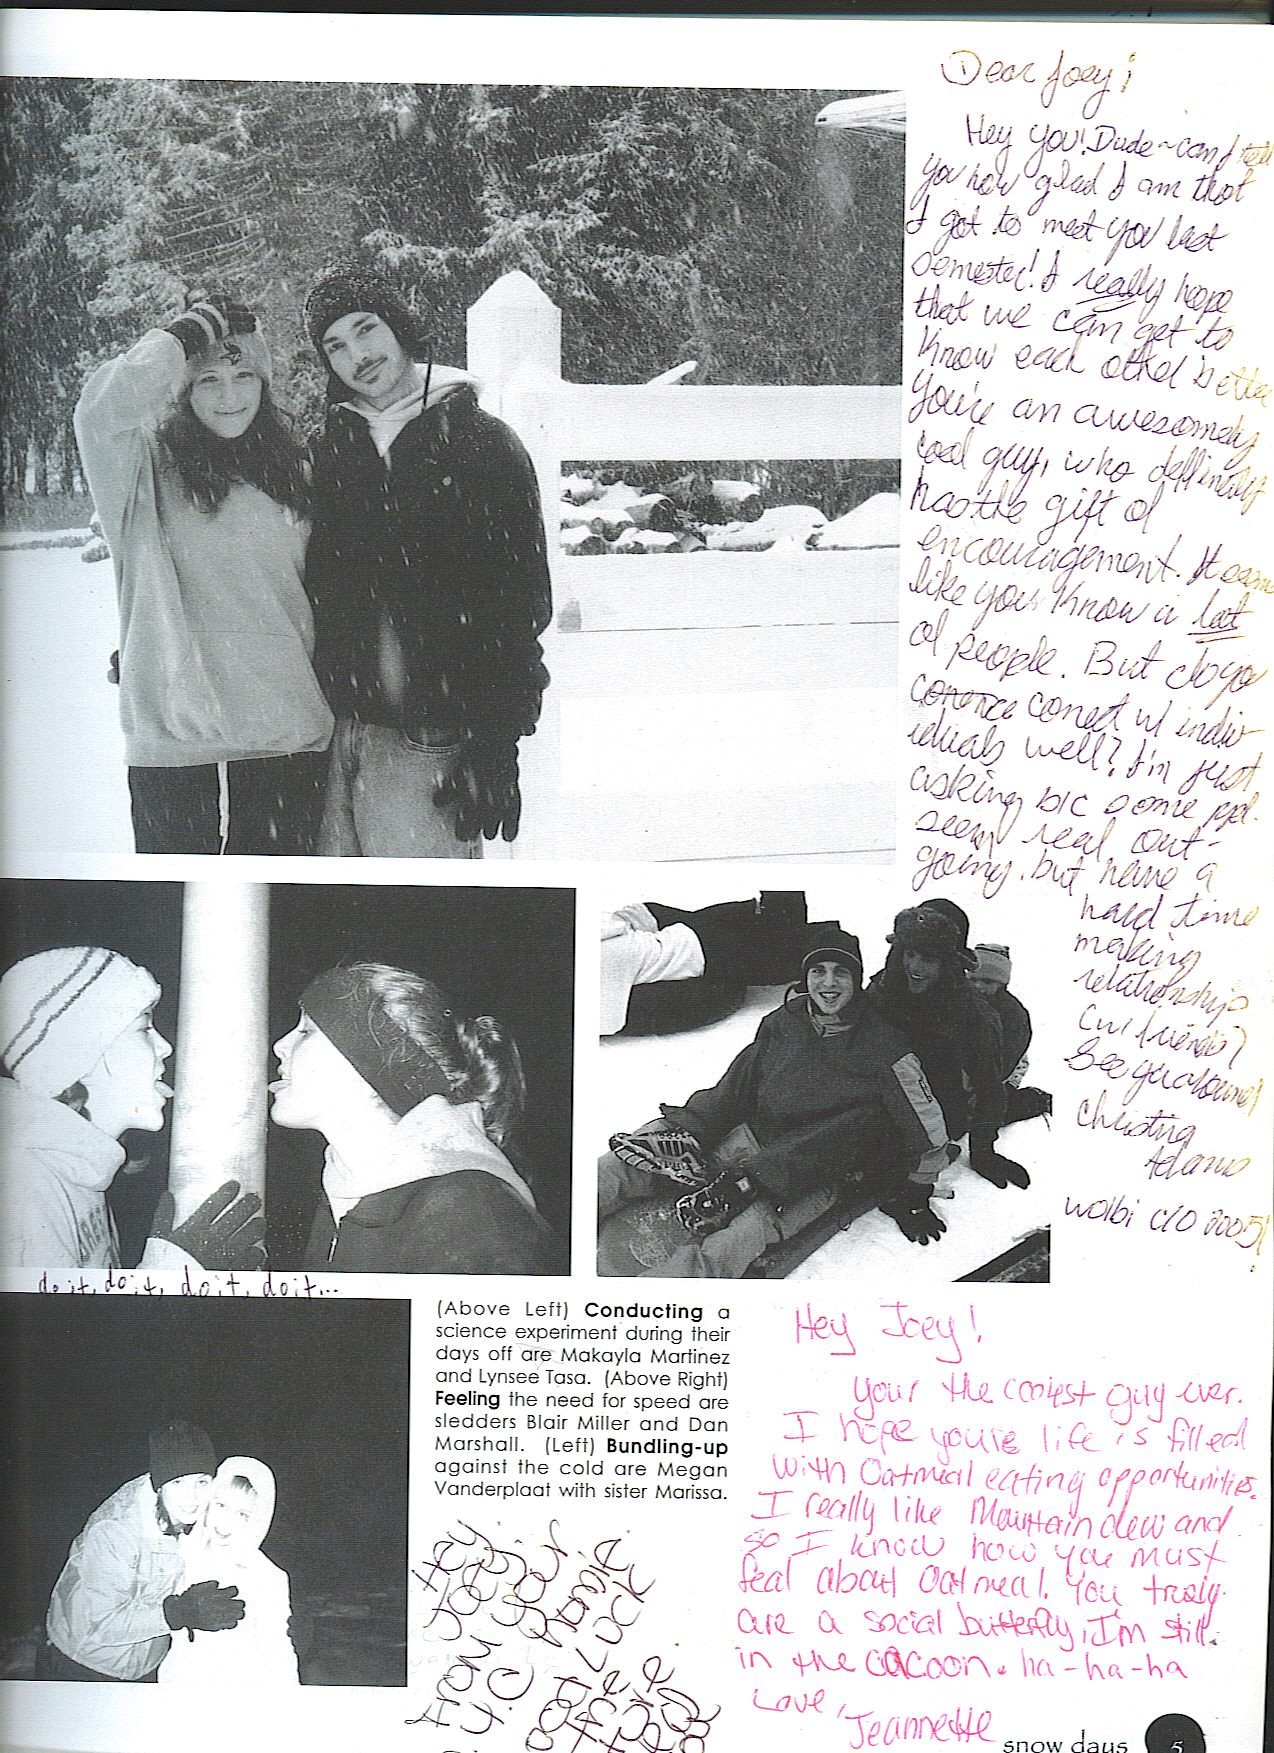 Dear Joey;
Hey you! Dude~can I tell
you how glad I am that
I got to meet you last
semester! I really hope
that we can get to
Know each other better
You're an awesomely
cool guy, who deffinitly
has the gift of
encouragement. It seems
like you Know a lot
of people. But do you
conect w/ indiv-
iduals well? I'm just
asking b/c some ppl.
seem real out-
going, but have a
hard time
making
relationship
(w/ friends)
See ya around!
Christina
Adams
wolbi c/o 2005!
do it, do it, do it, do it...
(Above Left) Conducting a
science experiment during their
days off are Makayla Martinez
and Lynsee Tasa. (Above Right)
Feeling the need for speed are
sledders Blair Miller and Dan
Marshall. (Left) Bundling-up
against the cold are Megan
Vanderplaat with sister Marissa.
Hey Joey!
Your the coolest guy ever.
I hope youre life is filled
with Oatmeal eating opportunities.
I really like Mountain dew and
so I know how you must
feal about Oatmeal. You truly
are a social butterfly, I'm still
in the cacoon. ha-ha-ha
Love,
Jeannette
Hey
Joey!
from your
Y.O.
good Luck
the
snow days 5